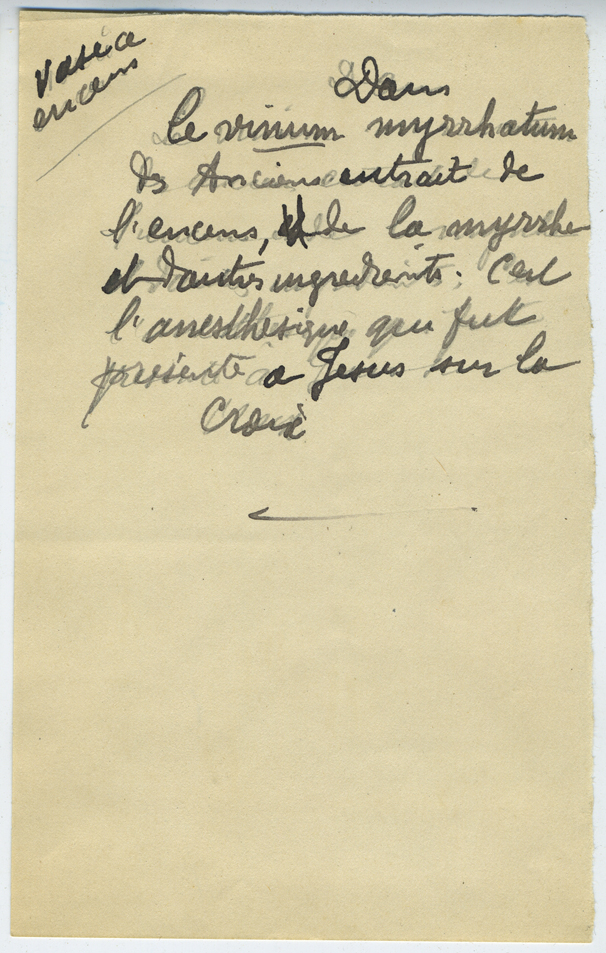 vase à
encens
Dans
le vinum myrrhatum
des Anciens entrait de
l'encens, de la myrrhe
et d'autres ingrédients. C'est
l'anesthésique qui fut
présenté à Jesus sur la
Croix